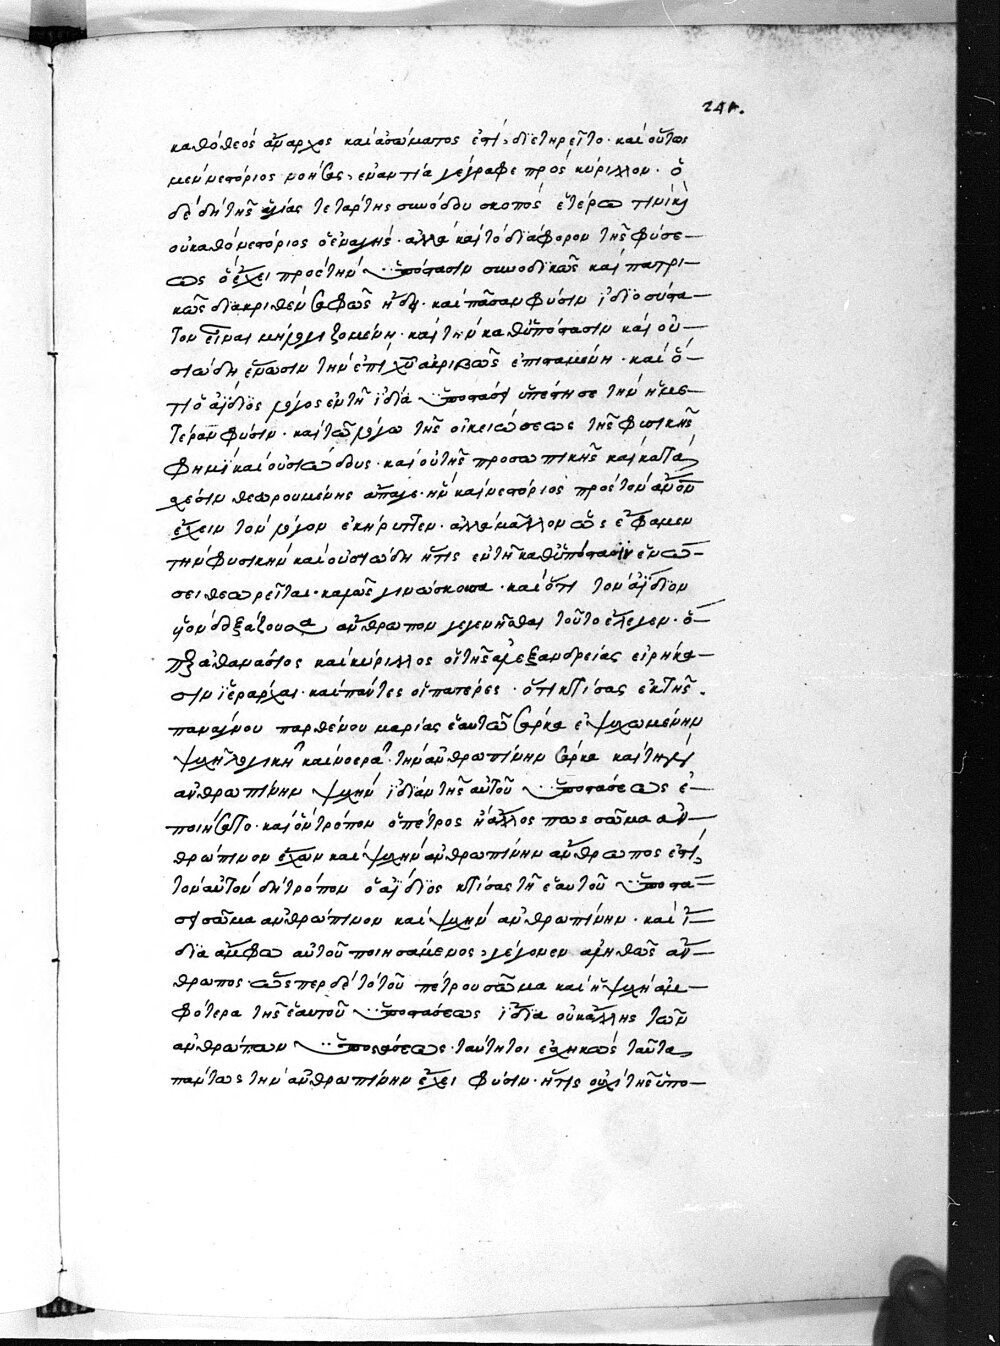 241.
καθὸ θεὸς ἄναρχος καὶ ἀσώματος ἐστὶ, διετηρεῖτο· καὶ οὕτως
μὲν νεστόριος νοήσας, ἐναντία γέγραφε πρὸς κύριλλον· ὁ
δὲ δὴ τῆς ἁγίας τετάρτης συνόδου σκοπὸς ἑτέρω τινὶ καὶ
οὐ καθὸ νεστόριος ὁ ἐναγὴς· ἀλλὰ καὶ τὸ διάφορον τῆς φύσε-
ως ὃ ἔχει πρὸς τὴν ὑπόστασιν συνοδικῶς καὶ πατρι-
κῶς διακριθὲν σαφῶς ἤδη· καὶ πᾶσαν φύσιν ἰδιοσύστα-
τον εἶναι μὴ λογιζομένη· καὶ τὴν καθυπόστασιν καὶ οὐ-
σιώδη ἕνωσιν τὴν ἐπὶ χῦ ἀκριβῶς ἐπισταμένη· καὶ ὅ-
τι ὁ ἀΐδιος λόγος ἐν τῆ ἰδία ὑποστάσει ὑπέστησε τὴν ἡμε-
τέραν φύσιν· καὶ τῶ λόγω τῆς οἰκειώσεως τῆς φυσικῆς
φημὶ καὶ οὐσιώδους· καὶ οὐ τῆς προσωπικῆς καὶ κατὰ
σχέσιν θεωρουμένης ἁπλῶς· ἣν καὶ νεστόριος πρὸς τὸν ἄνον
ἔχειν τὸν λόγον ἐκήρυττεν· ἀλλὰ μᾶλλον ὡς ἔφαμεν
τὴν φυσικὴν καὶ οὐσιώδη ἥτις ἐν τῆ καθυπόστασιν ἑνώ-
σει θεωρεῖται· καλῶς γινώσκουσα· καὶ ὅτι τὸν ἀΐδιον
υἱὸν δοξάζουσα ἄνθρωπον γεγενῆσθαι τοῦτο ἔλεγεν· ὅ-
περ ἀθανάσιος καὶ κύριλλος οἱ τῆς ἀλεξανδρείας εἰρήκα-
σιν ἱεράρχαι· καὶ πάντες οἱ πατέρες· ὅτι κτίσας ἐκ τῆς
παναγίου παρθένου μαρίας ἑαυτῶ σάρκα ἐψυχωμένην
ψυχῆ λογικῆ καὶ νοερᾶ· τὴν ἀνθρωπίνην σάρκα καὶ τὴν
ἀνθρωπίνην ψυχὴν ἰδίαν τῆς αὐτοῦ ὑποστάσεως ἐ-
ποιήσατο· καὶ ὃν τρόπον ὁ πέτρος ἢ ἄλλος πως σῶμα ἀν-
θρώπινον ἔχων καὶ ψυχὴν ἀνθρωπίνην ἄνθρωπος ἐστὶ,
τὸν αὐτὸν δὴ τρόπον ὁ ἀΐδιος κτίσας τῆ ἑαυτοῦ ὑποστά-
σει σῶμα ἀνθρώπινον καὶ ψυχὴν ἀνθρωπίνην· καὶ ἴ-
δια ἄμφω αὐτοῦ ποιησάμενος, γέγονεν ἀληθῶς ἄν-
θρωπος· ὥσπερ δὲ τὸ τοῦ πέτρου σῶμα καὶ ἡ ψυχὴ ἀμ-
φότερα τῆς ἑαυτοῦ ὑποστάσεως ἴδια οὐκ ἄλλης τῶν
ἀνθρώπων ὑποστάσεως· ταύτη τοι εἰληκὼς ταῦτα
πάντως τὴν ἀνθρωπίνην ἔχει φύσιν· ἥτις οὐχὶ τῆς ὑπο-